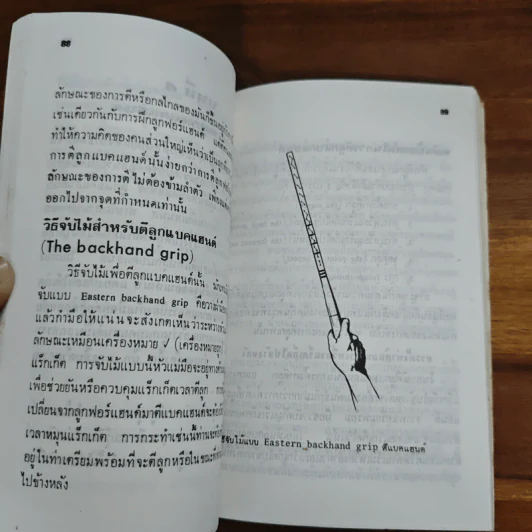 88
ลักษณะของการตีหรือกลไกของมันก็
เช่นเดียวกันกับการฝึกลูกฟอร์แฮนด์
ทำให้ความคิดของคนส่วนใหญ่เห็นว่า
การตีลูกแบคแฮนด์นั้นง่ายกว่าการตี
ลักษณะของการตีไม่ต้องข้ามลำตัว
ออกไปจากจุดที่กำหนดเท่านั้น
วิธีจับไม้สำหรับตีลูกแบคแฮนด์
(The backhand grip)
วิธีจับไม้เพื่อตีลูกแบคแฮนด์นั้น
จับแบบ Eastern backhand grip คือ
แล้วกำมือให้แน่น จะสังเกตเห็นว่าระหว่าง
ลักษณะเหมือนเครื่องหมาย ✓ (เครื่องหมายถูก
แร็กเก็ต การจับไม้แบบนี้หัวแม่มือจะอยู่
เพื่อช่วยยันหรือควบคุมแร็กเก็ตเวลาตีลูก
เปลี่ยนจากลูกฟอร์แฮนด์มาตีแบคแฮนด์
เวลาหมุนแร็กเก็ต การกระทำเช่นนี้ท่าน
อยู่ในท่าเตรียมพร้อมที่จะตีลูกหรือใน
ไปข้างหลัง
จับไม้แบบ Eastern backhand grip ตีแบคแฮนด์